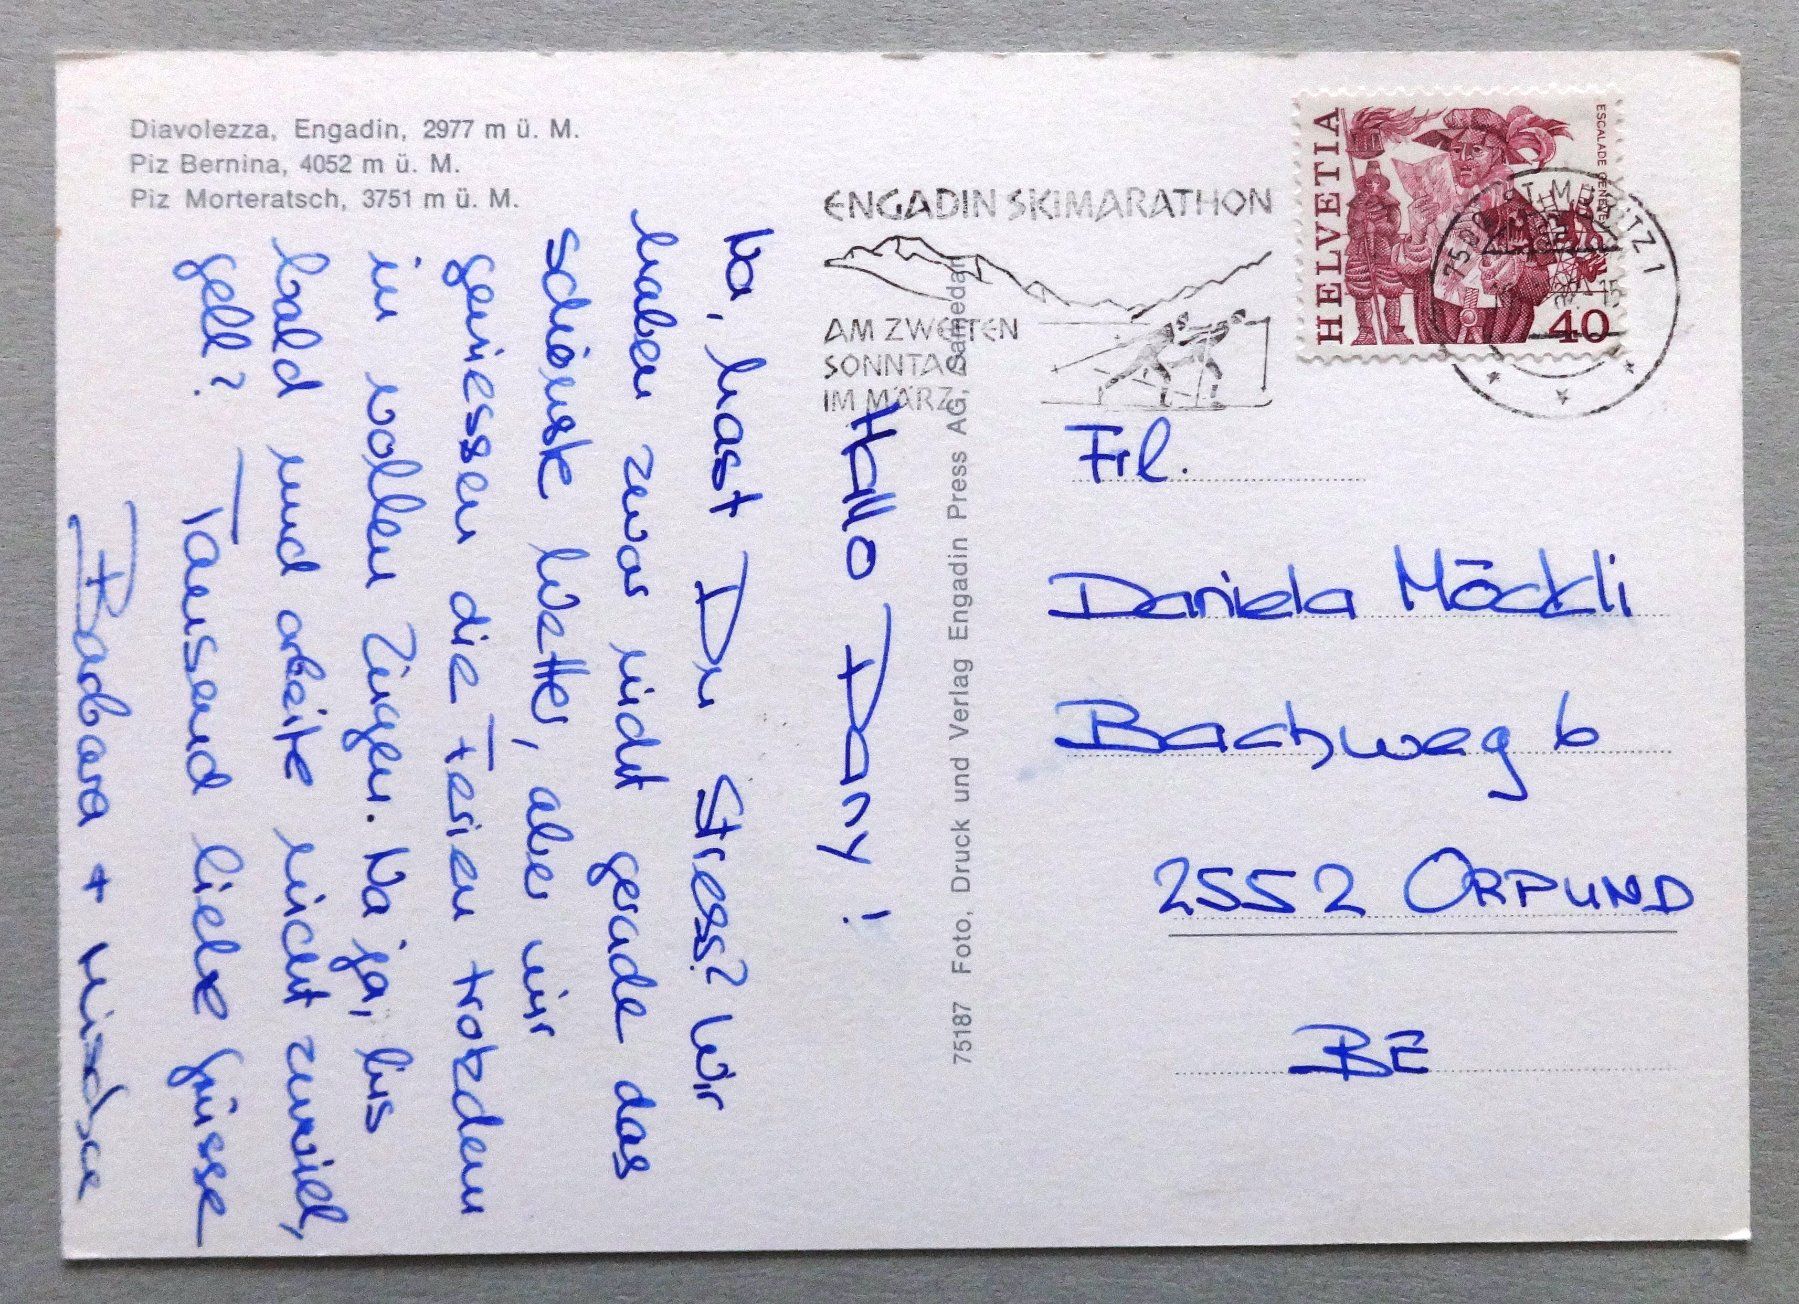 Diavolezza, Engadin, 2977 m ü. M.
Piz Bernina, 4052 m ü. M.
Piz Morteratsch, 3751 m ü. M.
Hallo Dany!
Na, hast Du Stress? Wir
haben zwar nicht gerade das
schönste Wetter, aber wir
geniessen die Ferien trotzdem
in vollen Zügen. Na ja, bis
bald und arbeite nicht zuviel,
gell? Tausend liebe Grüsse
Barbara +
75187 Foto, Druck und Verlag Engadin Press AG, Samedan
ENGADIN SKIMARATHON
AM ZWEITEN
SONNTAG
IM MÄRZ
HELVETIA
ESCALADE GENÈVE
40
7500 ST. MORITZ 1
Frl.
Daniela Möckli
Bachweg 6
2552 ORPUND
BE